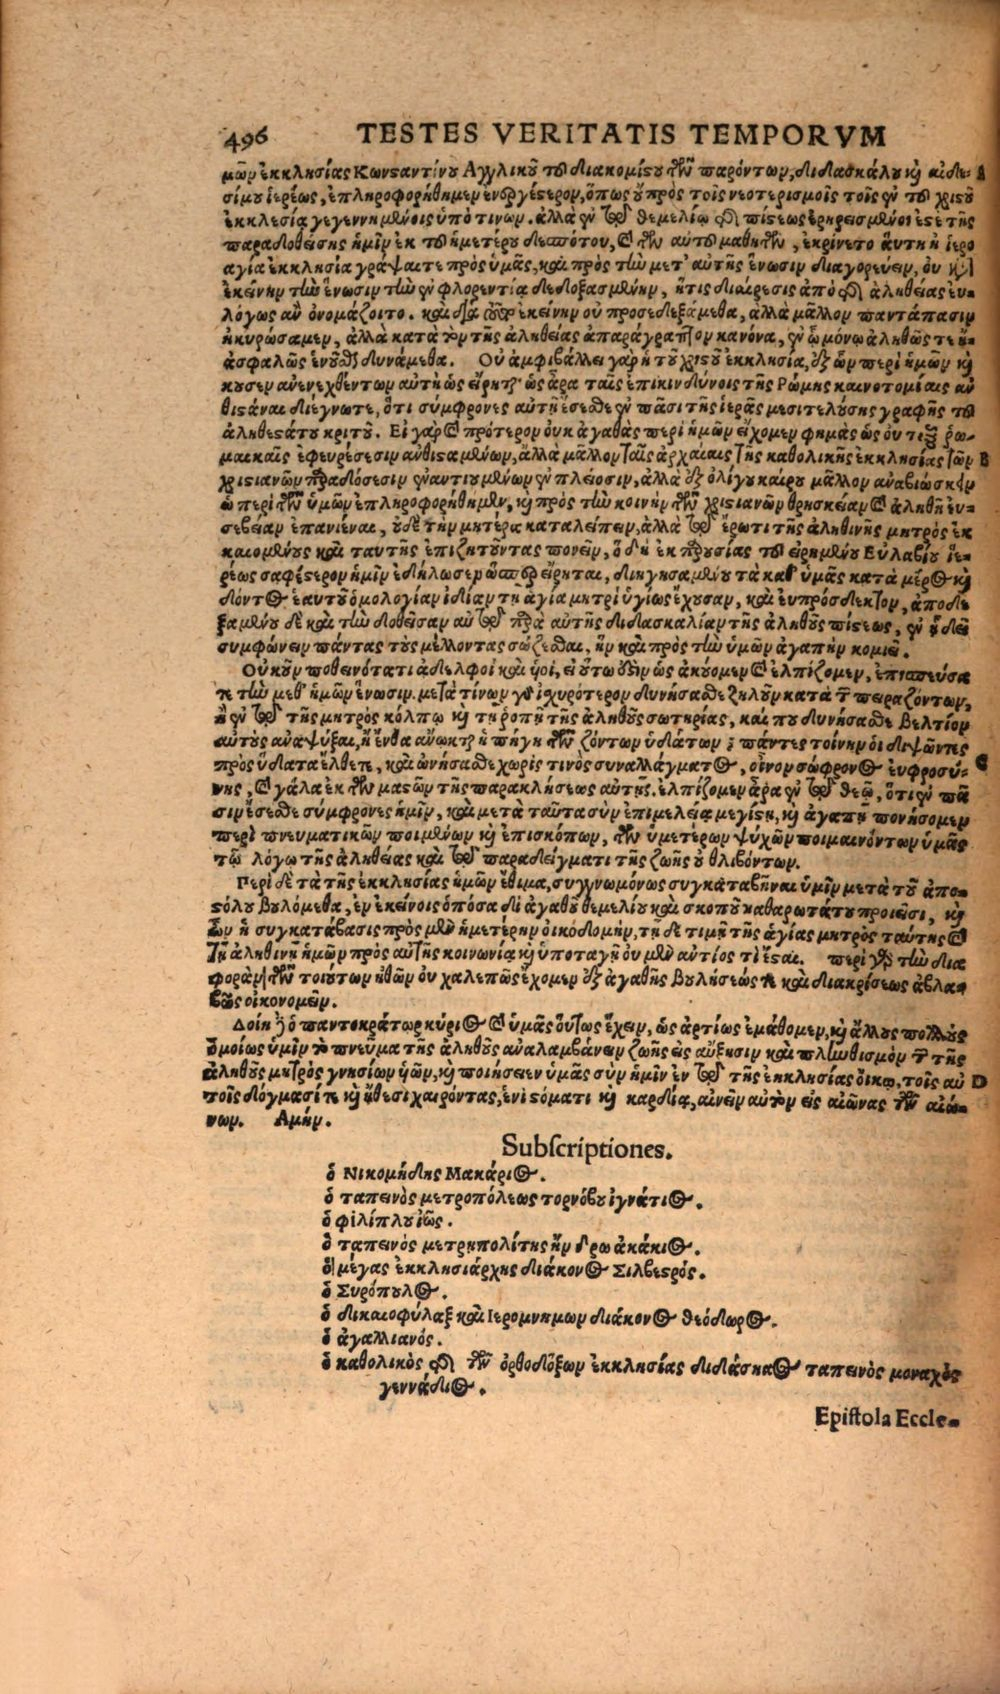 496 TESTES VERITATIS TEMPORVM
μῶν ἐκκλησίας Κωνσταντίνου Ἀγγλικοῦ τοῦ διακομιστοῦ τῶν παρόντων, διδασκάλου καὶ αἰδε- A
σίμου ἱερέως, ἐπληροφορήθημεν ἐνεργέστερον, ὅπως οὐ πρὸς τοῖς νεοτερισμοῖς τοῖς ἐν τοῦ χριστοῦ
ἐκκλεσίᾳ γεγεννημένοις ὑπό τινων. ἀλλὰ ἐν τῷ θεμελίῳ τῆς πίστεως ἐρηρεισμένοι ἐστὲ τῆς
παραδοθείσης ἡμῖν ἐκ τοῦ ἡμετέρου δεσπότου, καὶ τῶν αὐτοῦ μαθητῶν, ἐκρίνετο αὕτη ἡ ἱερο
αγία ἐκκλησία γράψαι τε πρὸς ὑμᾶς, καὶ πρὸς τὴν μετ' αὐτῆς ἕνωσιν διαγορεύειν, οὐ κατ'
ἐκείνην τὴν ἕνωσιν τὴν ἐν φλορεντίᾳ δεδοξασμένην, ἥτις διαίρεσις ἀπὸ τῆς ἀληθείας εὐ-
λόγως ἂν ὀνομάζοιτο. καὶ διὰ ὅπερ ἐκείνην οὐ προσεδεξάμεθα, ἀλλὰ μᾶλλον παντάπασιν
ἠκυρώσαμεν, ἀλλὰ κατὰ τὸν τῆς ἀληθείας ἀπαράγραπτον κανόνα, ἐν ᾧ μόνῳ ἀληθῶς τε ἢ
ἀσφαλῶς ἑνοῦσθαι δυνάμεθα. Οὐ ἀμφιβάλλει γαρ ἡ τοῦ χριστοῦ ἐκκλησία, ἐξ ὧν περὶ ἡμῶν καὶ
κουσεν ἀνενεχθέντων αὐτῇ ὡς εἴρηται ὡς ἄρα ταῖς ἐπικινδύνοις τῆς Ρώμης καινοτομίαις ἀν
θιστάναι διέγνωτε, ὅτι σύμφρονες αὐτῇ ἔσεσθε ἐν πᾶσι τῆς ἱερᾶς μεσιτευούσης γραφῆς τοῦ
ἀληθεστάτου κριτοῦ. Εἰ γὰρ καὶ πρότερον οὐκ ἀγαθὰς περὶ ἡμῶν εἴχομεν φημὰς ὡς οὐ ταῖς ῥω-
μαικαῖς ἐφευρέσεσιν ἀνθισταμένων, ἀλλὰ μᾶλλον ταῖς ἀρχαίαις τῆς καθολικῆς ἐκκλησίας τῶν B
χριστιανῶν παραδόσεσιν ἐναντιουμένων ἐν πλείοσιν, ἀλλὰ ἐξ ὀλίγου καιροῦ μᾶλλον ἀναβιώσκειν
ὦ περὶ τῶν ὑμῶν ἐπληροφορήθημεν, καὶ πρὸς τὴν κοινὴν τῶν χριστιανῶν θρησκείαν καὶ ἀληθῆ εὐ-
σεβειαν ἐπανιέναι, οὐδὲ τὴν μητέρα καταλείπειν, ἀλλὰ τῷ ἔρωτι τῆς ἀληθινῆς μητρὸς ἐκ
καιομένους καὶ ταύτης ἐπιζητοῦντας πονεῖν, ὃ δὴ ἐκ παρουσίας τοῦ εἰρημένου Εὐλαβίου ἱε-
ρέως σαφέστερον ἡμῖν ἐδήλωσεν ὥσπερ εἴρηται, διηγησαμένου τὰ καθ' ὑμᾶς κατὰ μέρος καὶ
δόντος ἑαυτοῦ ὁμολογίαν ἰδίαν τῇ ἁγίᾳ μητρὶ ὑγίως ἔχουσαν, καὶ εὐπρόσδεκτον, ἀποδε
ξαμένου δὲ καὶ τὴν δοθεῖσαν αὐτῷ παρὰ αὐτῆς διδασκαλίαν τῆς ἀληθοῦς πίστεως, ἐν ᾗ δεῖ
συμφώνειν πάντας τοὺς μέλλοντας σώζεσθαι, ἣν καὶ πρὸς τὴν ὑμῶν ἀγαπὴν κομιεῖ.
Οὐκοῦν ποθεινότατι ἀδελφοὶ καὶ ὑιοὶ, εἰ οὕτω ἐστὶν ὡς ἀκούομεν καὶ ἐλπίζομεν, ἐπισπεύσα
τε τὴν μεθ' ἡμῶν ἕνωσιν. μετὰ τίνων γὰρ ἰσχυρότερον δυνήσασθε ζηλοῦν κατὰ τῶν πειραζόντων,
ἢ ἐν τῷ τῆς μητρὸς κόλπῳ καὶ τῇ ῥοπῇ τῆς ἀληθοῦς σωτηρίας, καὶ που δυνήσασθε βελτίον
αὐτοὺς ἀναψύξαι, ἢ ἔνθα ἀνῶκται ἡ πήγη τῶν ζόντων ὑδάτων; πάντες τοίνην ὁι διψῶντες
πρὸς ὕδατα ἔλθετε, καὶ ὠνήσασθε χωρίς τινὸς συναλλάγματος, οἶνον σώφρονος ἐυφροσύ- C
νης, καὶ γάλα ἐκ τῶν μαστῶν τῆς παρακλήσεως αὐτῆς. ἐλπίζομεν ἄρα ἐν τῷ θεῷ, ὅτι ἐν πᾶ
σιν ἔσεσθε σύμφρονες ἡμῖν, καὶ μετὰ ταῦτα σὺν ἐπιμελείᾳ μεγίστῃ, καὶ ἀγαπῃ πονήσομεν
περὶ πνευματικῶν ποιμένων καὶ ἐπισκόπων, τῶν ὑμετέρων ψύχων ποιμαινόντων ὑμᾶς
τῷ λόγῳ τῆς ἀληθείας καὶ τῷ παραδείγματι τῆς ζωῆς οὐ θλιβόντων.
Περὶ δὲ τὰ τῆς ἐκκλησίας ἡμῶν ἔθιμα, συγγνωμόνως συγκαταβῆναι ὑμῖν μετὰ τοῦ ἀπο-
στόλου βουλόμεθα, ἐν ἐκείνοις ὁπόσα δι ἀγαθοῦ θεμελίου καὶ σκοποῦ καθαρωτάτου προιεῖσι, καὶ
ὧν ἡ συγκατάβασις πρὸς μὲν ἡμετέρην οἰκοδομὴν, τῇ δὲ τιμῇ τῆς ἁγίας μητρὸς ταύτης καὶ
τῇ ἀληθινῇ ἡμῶν πρὸς αὐτῆς κοινωνίᾳ καὶ ὑποταγῇ οὐ μὲν αὐτίος τι ἔσται. περὶ γὰρ τὴν δια
φορὰν τῶν τοιούτων ἠθῶν οὐ χαλεπῶς ἔχομεν ἐξ ἀγαθῆς βουλήσεώς τε καὶ διακρίσεως ἀβλα-
βῶς οἰκονομεῖν.
Δοίη γὰρ ὁ παντοκράτωρ κύριος καὶ ὑμᾶς οὕτως ἔχειν, ὡς ἀρτίως ἐμάθομεν, καὶ ἄλλους πολλοὺς
ὁμοίως ὑμῖν τὸ πνεῦμα τῆς ἀληθοῦς ἀναλαμβάνειν ζωῆς εἰς αὔξησιν καὶ πληθισμὸν τῶν τῆς
ἀληθοῦς μητρὸς γνησίων ὑιῶν, καὶ ποιήσειεν ὑμᾶς σὺν ἡμῖν ἐν τῷ τῆς ἐκκλησίας ὄικῳ, τοῖς αὐ D
τοῖς δόγμασί τε καὶ ἤθεσι χαιρόντας, ἑνὶ στόματι καὶ καρδίᾳ, αἰνεῖν αὐτὸν εἰς αἰῶνας τῶν αἰώ-
νων. Αμήν.
Subscriptiones.
ὁ Νικομήδης Μακάριος.
ὁ ταπεινὸς μετροπόλεως τορνόβου ἰγνάτιος.
ὁ φιλίπλου ἰῶς.
ὁ ταπεινὸς μετρηπολίτης ἤν δρω ἀκάκιος.
ὁ μέγας ἐκκλησιάρχης διάκονος Σιλβεστρός.
ὁ Συρόπουλος.
ὁ δικαιοφύλαξ καὶ Ιερομνημων διάκονος θεόδωρος.
ὁ ἀγαλλιανός.
ὁ καθολικὸς τῆς τῶν ὀρθοδόξων ἐκκλησίας διδάσκαλος ταπεινὸς μοναχὸς
γεννάδιος.
Epistola Eccle-